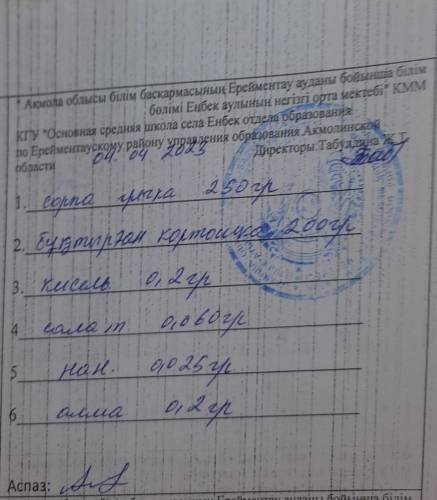 "Акмола облысы білім басқармасының Ерейментау ауданы бойынша білім
бөлімі Еңбек аулының негізгі орта мектебі" КММ
КГУ "Основная средняя школа села Енбек отдела образования
по Ерейментаускому району управления образования Акмолинской
области 04.04.2023 Директоры: Табулдина К.Т.
1. сорпа 250гр
2. картошка 200гр
3. кисель 0,2гр
4 салат 0,060гр
5 нан. 0,025гр
6 алма 0,2гр
Аспаз: